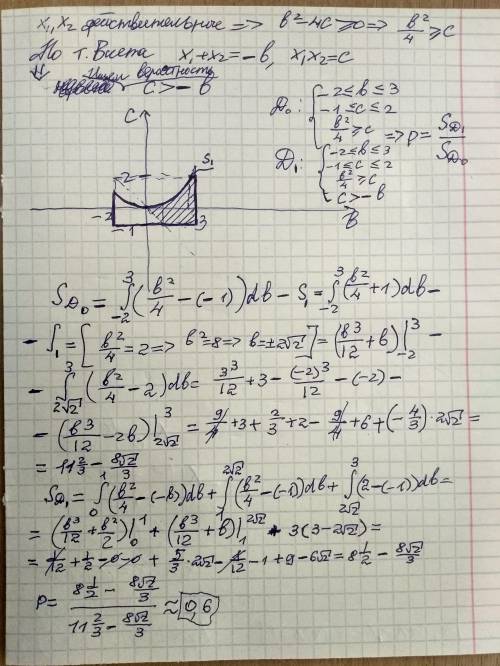 x₁, x₂ действительные => b²-4c≥0 => b²/4 ≥ c
По т. Виета x₁+x₂=-b, x₁x₂=c
⇓ Ищем вероятность c>-b
D₀: { -2≤b≤3
-1≤c≤2
b²/4≥c => p = S_D₁/S_D₀
D₁: { -2≤b≤3
-1≤c≤2
b²/4≥c
c>-b
C
2
S₁
-2
-1
3
B
S_D₀ = ∫₋₂³ (b²/4 - (-1))db - S₁ = ∫₋₂³ (b²/4 + 1)db -
- S₁ = [b²/4 = 2 => b²=8 => b=±2√2] = (b³/12 + b)|₋₂³ -
- ∫_{2√2}³ (b²/4 - 2)db = 3³/12 + 3 - (-2)³/12 - (-2) -
- (b³/12 - 2b)|_{2√2}³ = 9/4 + 3 + 2/3 + 2 - 9/4 + 6 + (-4/3)·2√2 =
= 11 2/3 - 8√2/3
S_D₁ = ∫₀¹ (b²/4 - (-b))db + ∫₁^{2√2} (b²/4 - (-1))db + ∫_{2√2}³ (2-(-1))db =
= (b³/12 + b²/2)|₀¹ + (b³/12 + b)|₁^{2√2} + 3(3-2√2) =
= 1/12 + 1/2 - 0 - 0 + 5/3·2√2 - 1/12 - 1 + 9 - 6√2 = 8 1/2 - 8√2/3
P = (8 1/2 - 8√2/3)/(11 2/3 - 8√2/3) ≈ 0,6